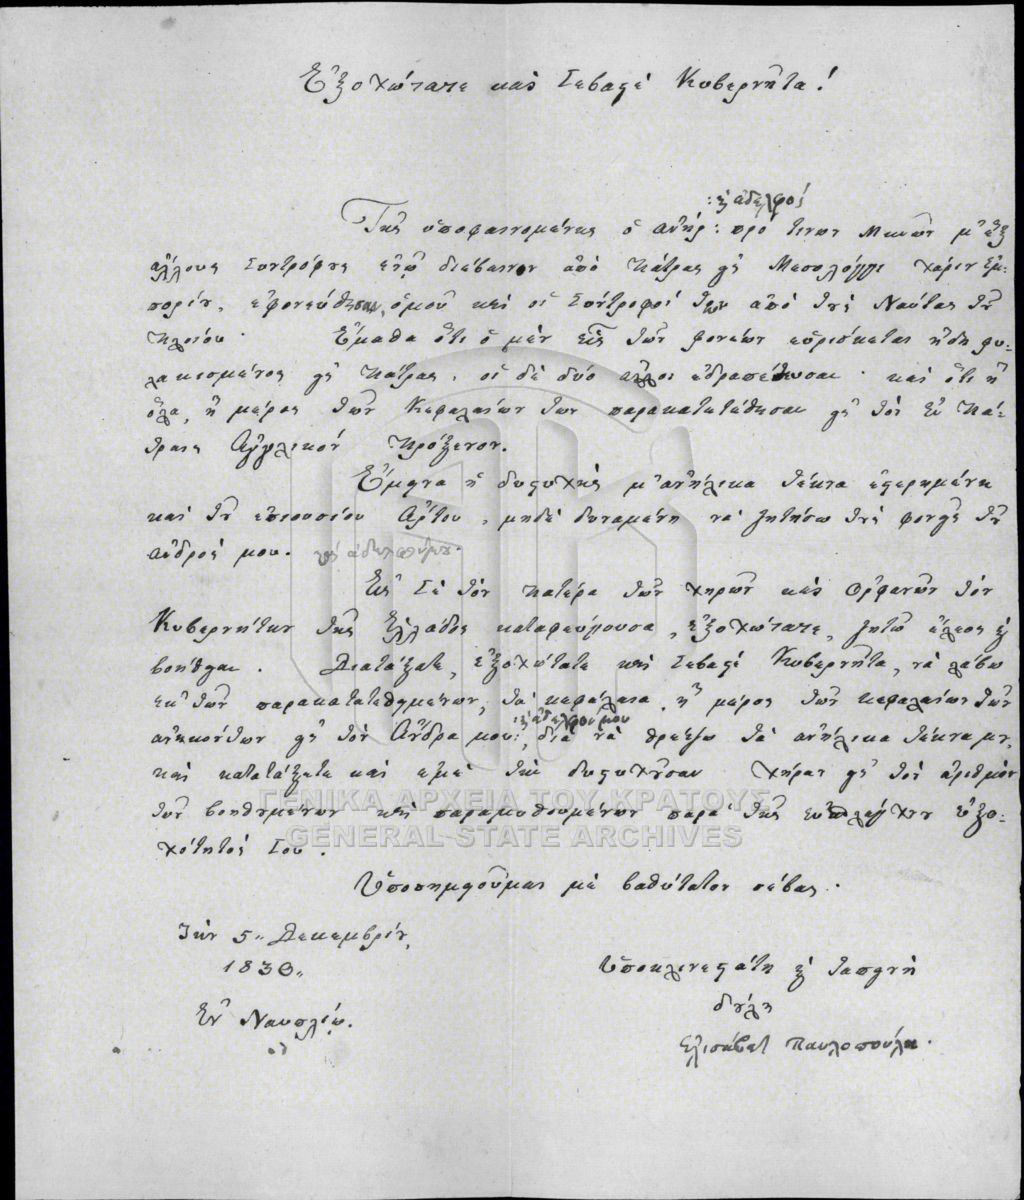 Ἐξοχώτατε καὶ Σεβαστὲ Κυβερνῆτα!
: κ̀ ἀδελφοὶ
Τῆς ὑποφαινομένης ὁ ἀνὴρ : πρό τινων Μηνῶν μ' ἓξ
ἄλλους Συντρόφους ἐνῷ διέβαινον ἀπὸ Πάτρας εἰς Μεσολόγγι χάριν ἐμ-
πορίου, ἐφονεύθησαν, ὁμοῦ καὶ οἱ Σύντροφοί των ἀπὸ τοὺς Ναύτας τοῦ
Πλοίου. Ἔμαθα ὅτι ὁ μὲν εἷς τῶν φονέων εὑρίσκεται ἤδη φυ-
λακισμένος εἰς Πάτρας, οἱ δὲ δύο ἄλλοι ἐδραπέτευσαν· καὶ ὅτι ἢ
ὅλα, ἢ μέρος τῶν Κεφαλαίων των παρακατετέθησαν εἰς τὸν ἐν Πά-
τραις Ἀγγλικὸν Πρόξενον.
Ἔμεινα ἡ δυστυχὴς μ' ἀνήλικα τέκνα ἐστερημένη
καὶ τοῦ ἐπιουσίου Ἄρτου, μηδὲ δυναμένη νὰ ζητήσω τοὺς φονεῖς τοῦ
ἀνδρός μου. καὶ ἀδελφῶν μου.
Εἰς Σὲ τὸν Πατέρα τῶν χηρῶν καὶ Ὀρφανῶν τὸν
Κυβερνήτην τῆς Ἑλλάδος καταφεύγουσα, ἐξοχώτατε, ζητῶ ἔλεος κ̀
βοήθειαν. Διατάξατε, ἐξοχώτατε καὶ Σεβαστὲ Κυβερνῆτα, νὰ λάβω
ἐκ τῶν παρακατατεθημένων, τὰ κεφάλαια, ἢ μέρος τῶν κεφαλαίων τῶν
: κ̀ ἀδελφούς μου
ἀνηκόντων εἰς τὸν Ἄνδρα μου :, διὰ νὰ θρέψω τὰ ἀνήλικα τέκνα μου,
καὶ κατατάξετε καὶ ἐμὲ τὴν δυστυχῆ Χήραν εἰς τὸν ἀριθμὸν
τῶν βοηθημένων καὶ παραμυθουμένων παρὰ τῆς εὐσπλάγχνου ἐξο-
χότητός Σου.
Ὑποσημειοῦμαι μὲ βαθύτατον σέβας.
Τὴν 5 Δεκεμβρίου,
1830
Ἐν Ναυπλίῳ.
Ὑποκλινεστάτη κ̀ ταπεινὴ
δούλη
Ἐλισάβετ Παυλοπούλου.
ΓΕΝΙΚΑ ΑΡΧΕΙΑ ΤΟΥ ΚΡΑΤΟΥΣ
GENERAL STATE ARCHIVES